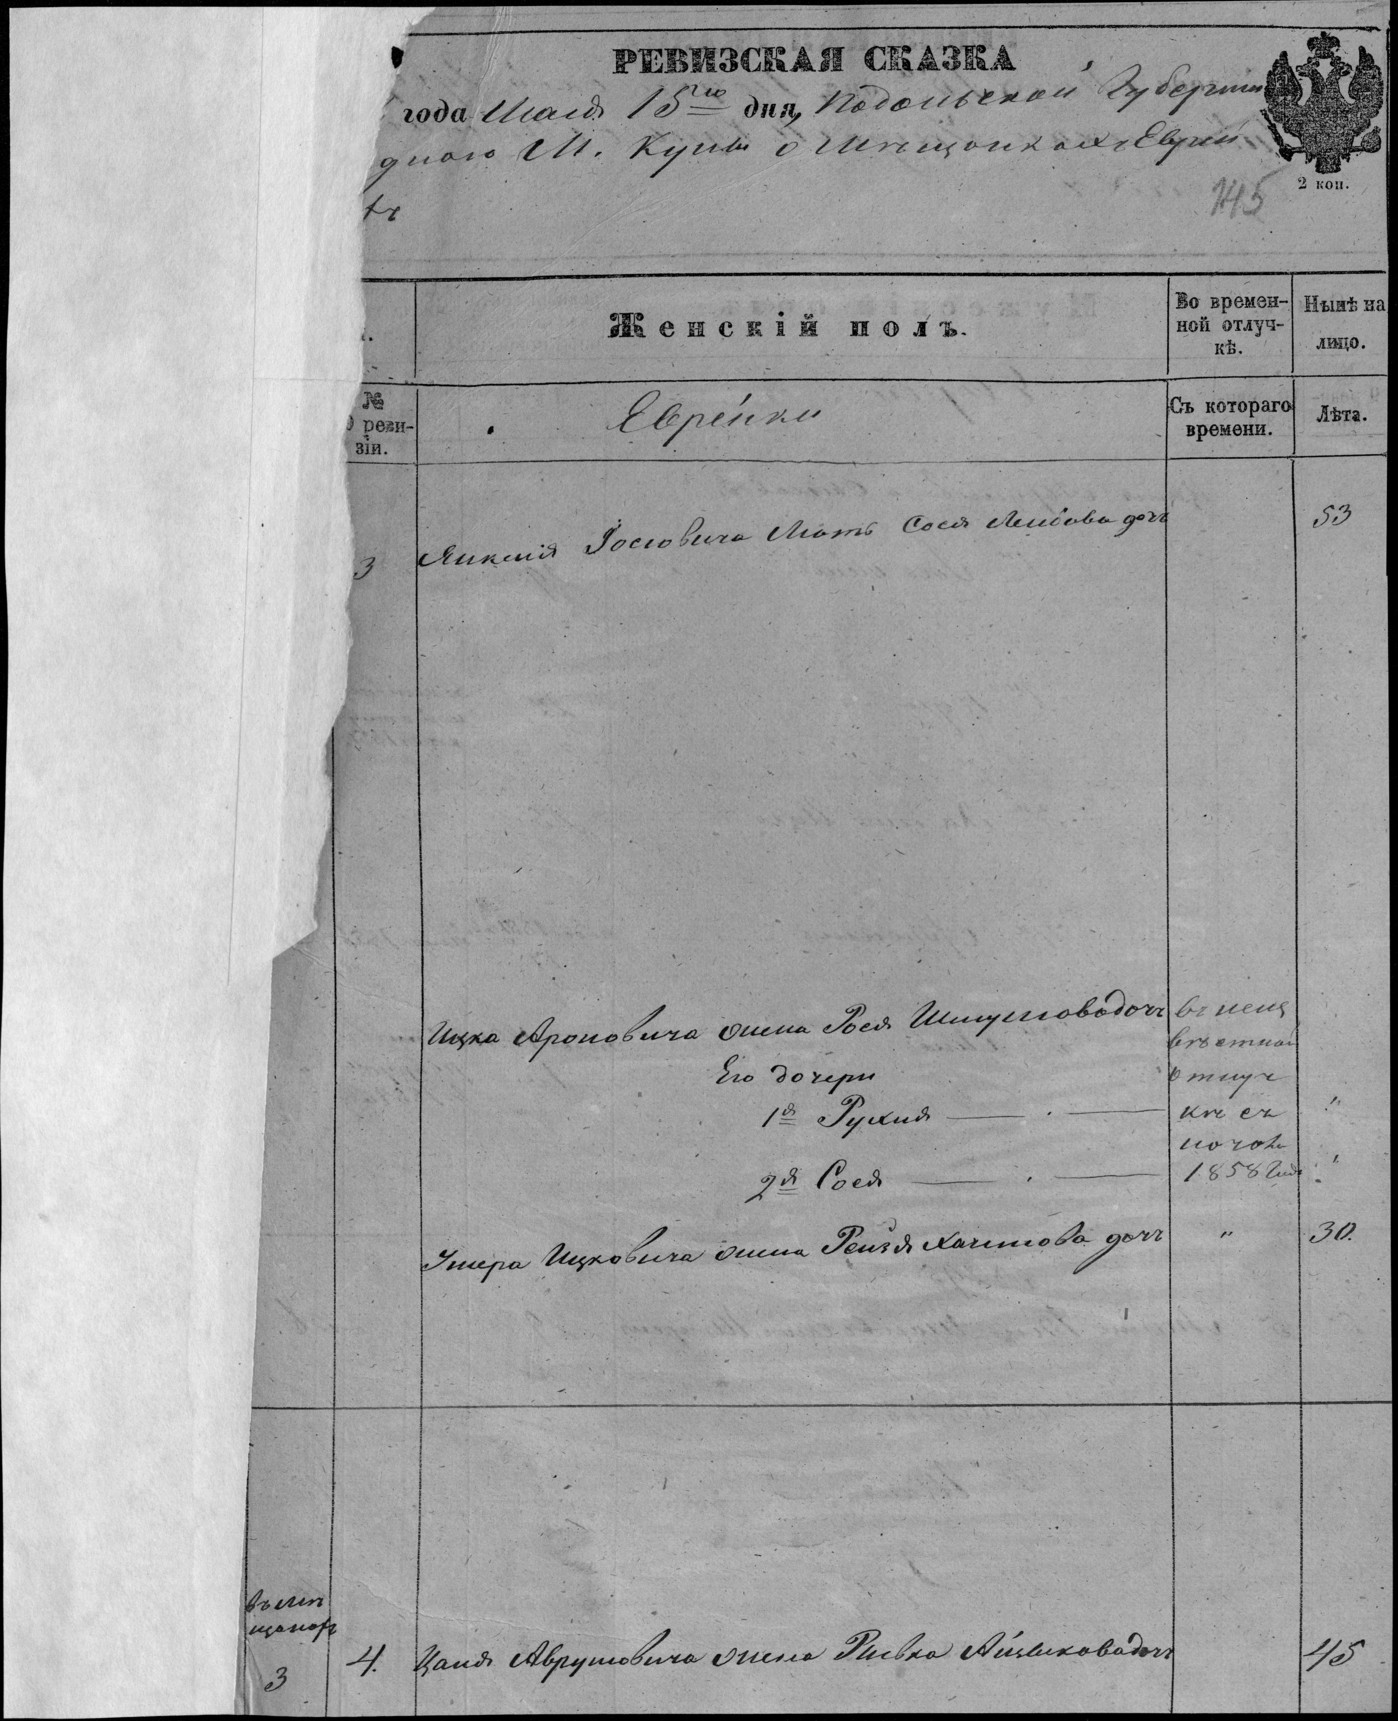 РЕВИЗСКАЯ СКАЗКА
года Мая 15го дня, Подольской Губернии
дного М. о мещанкахъ Евреи
тъ
2 коп.
145
Женскій полъ.
Во времен-
ной отлуч-
кѣ.
Нынѣ на
лицо.
№
реви-
зіи.
Еврейки
Съ котораго
времени.
Лѣта.
3
Янкеля Іосіовича Мать Сося Лейбова дочь
53
Ицка Ароновича жена Рося Шмулиова дочь
въ неиз
вѣстной
Его дочери
отлуч
1я Рухля
кѣ съ
2я Сося
1858 Года
Ицковича жена Рейзя Хаимова дочь
"
30.
въ мѣ
щанахъ
3
4.
Цаля Аврумовича жена Ривка Айзикова дочь
45